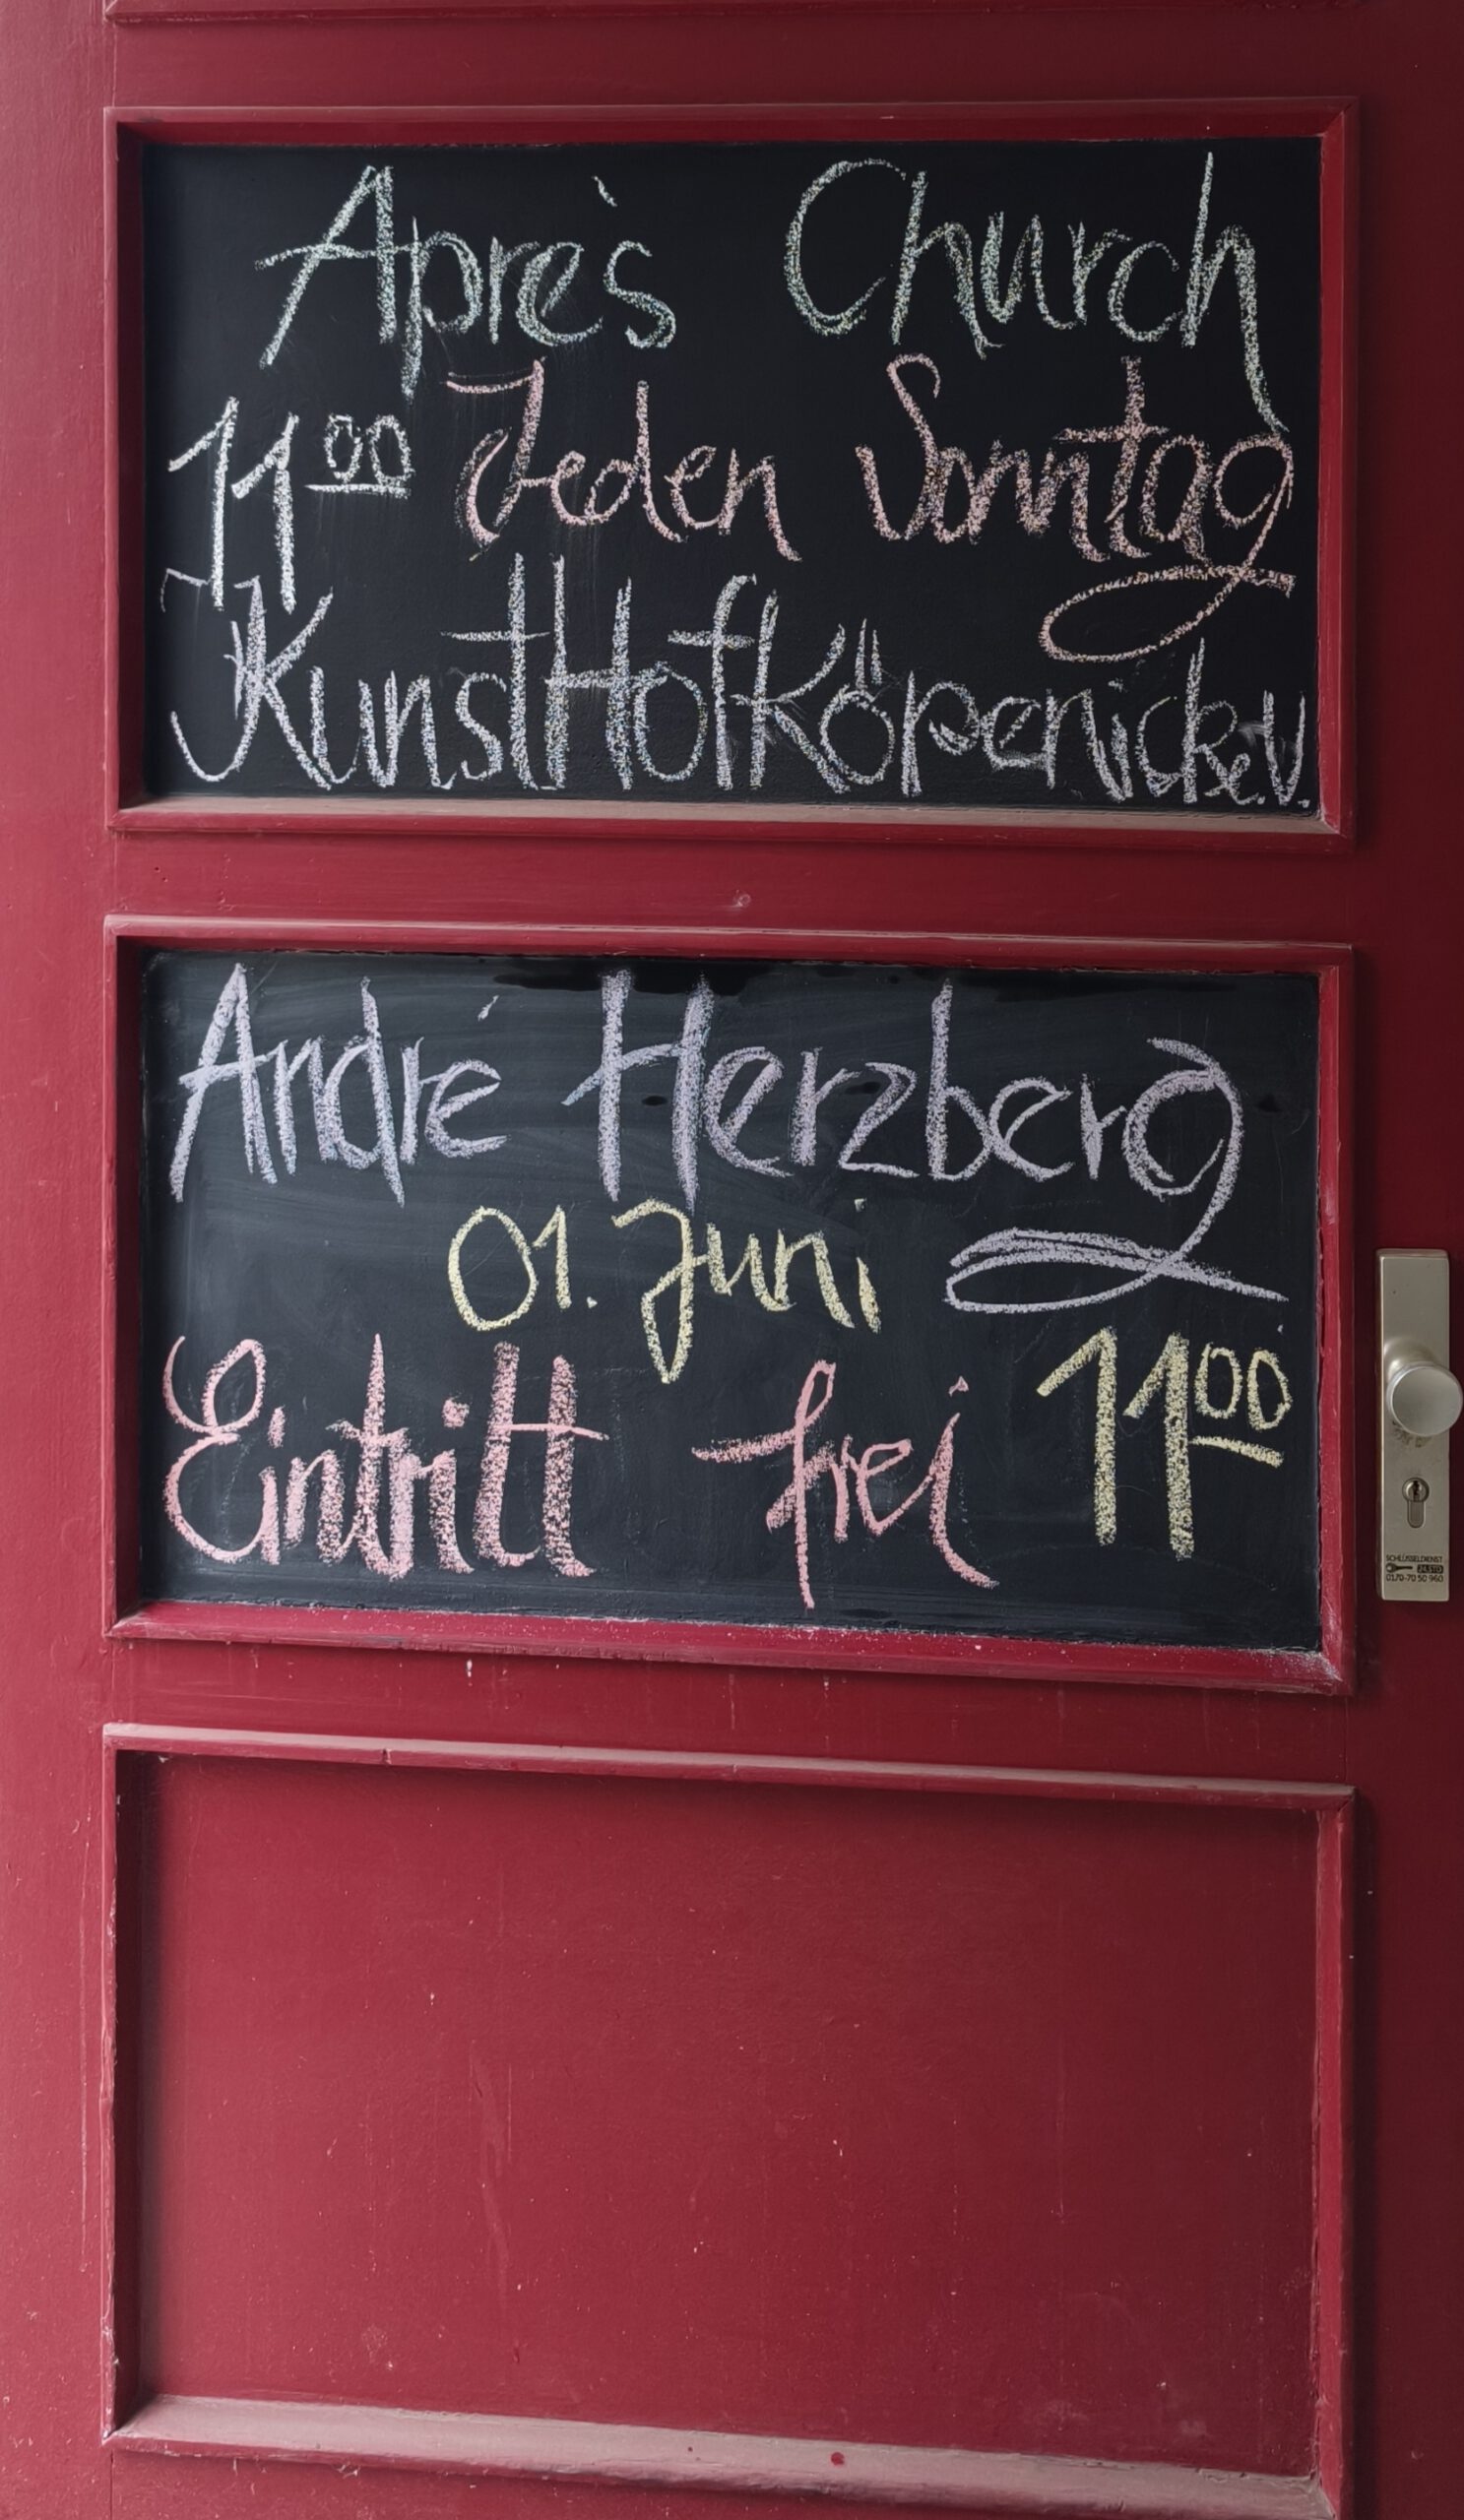 Après Church
11⁰⁰ Jeden Sonntag
KunstHofKöpenick e.V.
André Herzberg
01. Juni
Eintritt frei 11⁰⁰
SCHLÜSSELDIENST
24 STD
0170-70 50 960